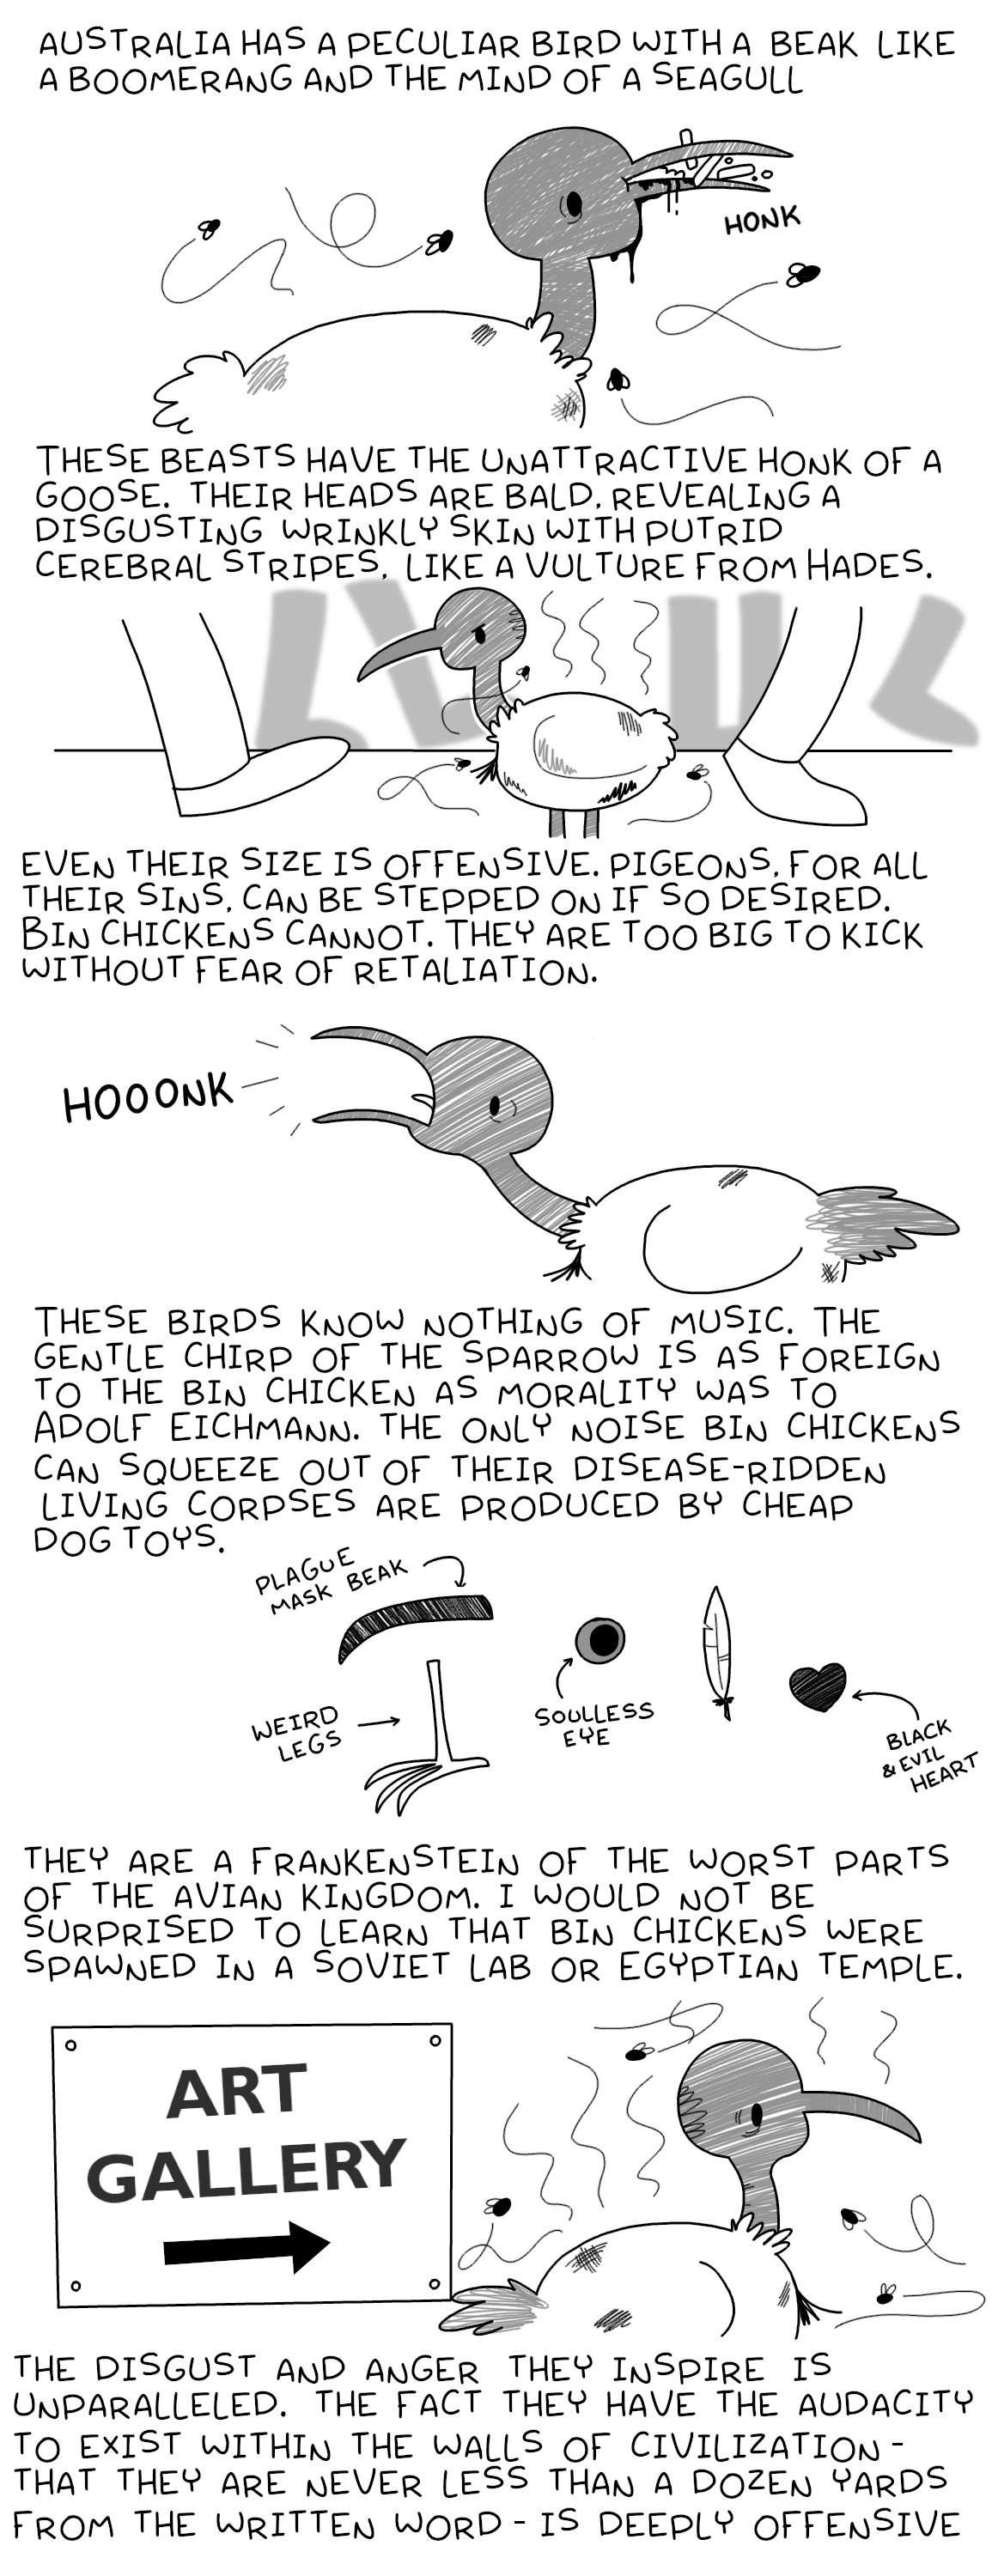 AUSTRALIA HAS A PECULIAR BIRD WITH A BEAK LIKE
A BOOMERANG AND THE MIND OF A SEAGULL
HONK
THESE BEASTS HAVE THE UNATTRACTIVE HONK OF A
GOOSE. THEIR HEADS ARE BALD, REVEALING A
DISGUSTING WRINKLY SKIN WITH PUTRID
CEREBRAL STRIPES, LIKE A VULTURE FROM HADES.
EVEN THEIR SIZE IS OFFENSIVE. PIGEONS, FOR ALL
THEIR SINS, CAN BE STEPPED ON IF SO DESIRED.
BIN CHICKENS CANNOT. THEY ARE TOO BIG TO KICK
WITHOUT FEAR OF RETALIATION.
HOOONK
THESE BIRDS KNOW NOTHING OF MUSIC. THE
GENTLE CHIRP OF THE SPARROW IS AS FOREIGN
TO THE BIN CHICKEN AS MORALITY WAS TO
ADOLF EICHMANN. THE ONLY NOISE BIN CHICKENS
CAN SQUEEZE OUT OF THEIR DISEASE-RIDDEN
LIVING CORPSES ARE PRODUCED BY CHEAP
DOG TOYS.
PLAGUE
MASK BEAK
WEIRD
LEGS
SOULLESS
EYE
BLACK
& EVIL
HEART
THEY ARE A FRANKENSTEIN OF THE WORST PARTS
OF THE AVIAN KINGDOM. I WOULD NOT BE
SURPRISED TO LEARN THAT BIN CHICKENS WERE
SPAWNED IN A SOVIET LAB OR EGYPTIAN TEMPLE.
ART
GALLERY
THE DISGUST AND ANGER THEY INSPIRE IS
UNPARALLELED. THE FACT THEY HAVE THE AUDACITY
TO EXIST WITHIN THE WALLS OF CIVILIZATION -
THAT THEY ARE NEVER LESS THAN A DOZEN YARDS
FROM THE WRITTEN WORD - IS DEEPLY OFFENSIVE